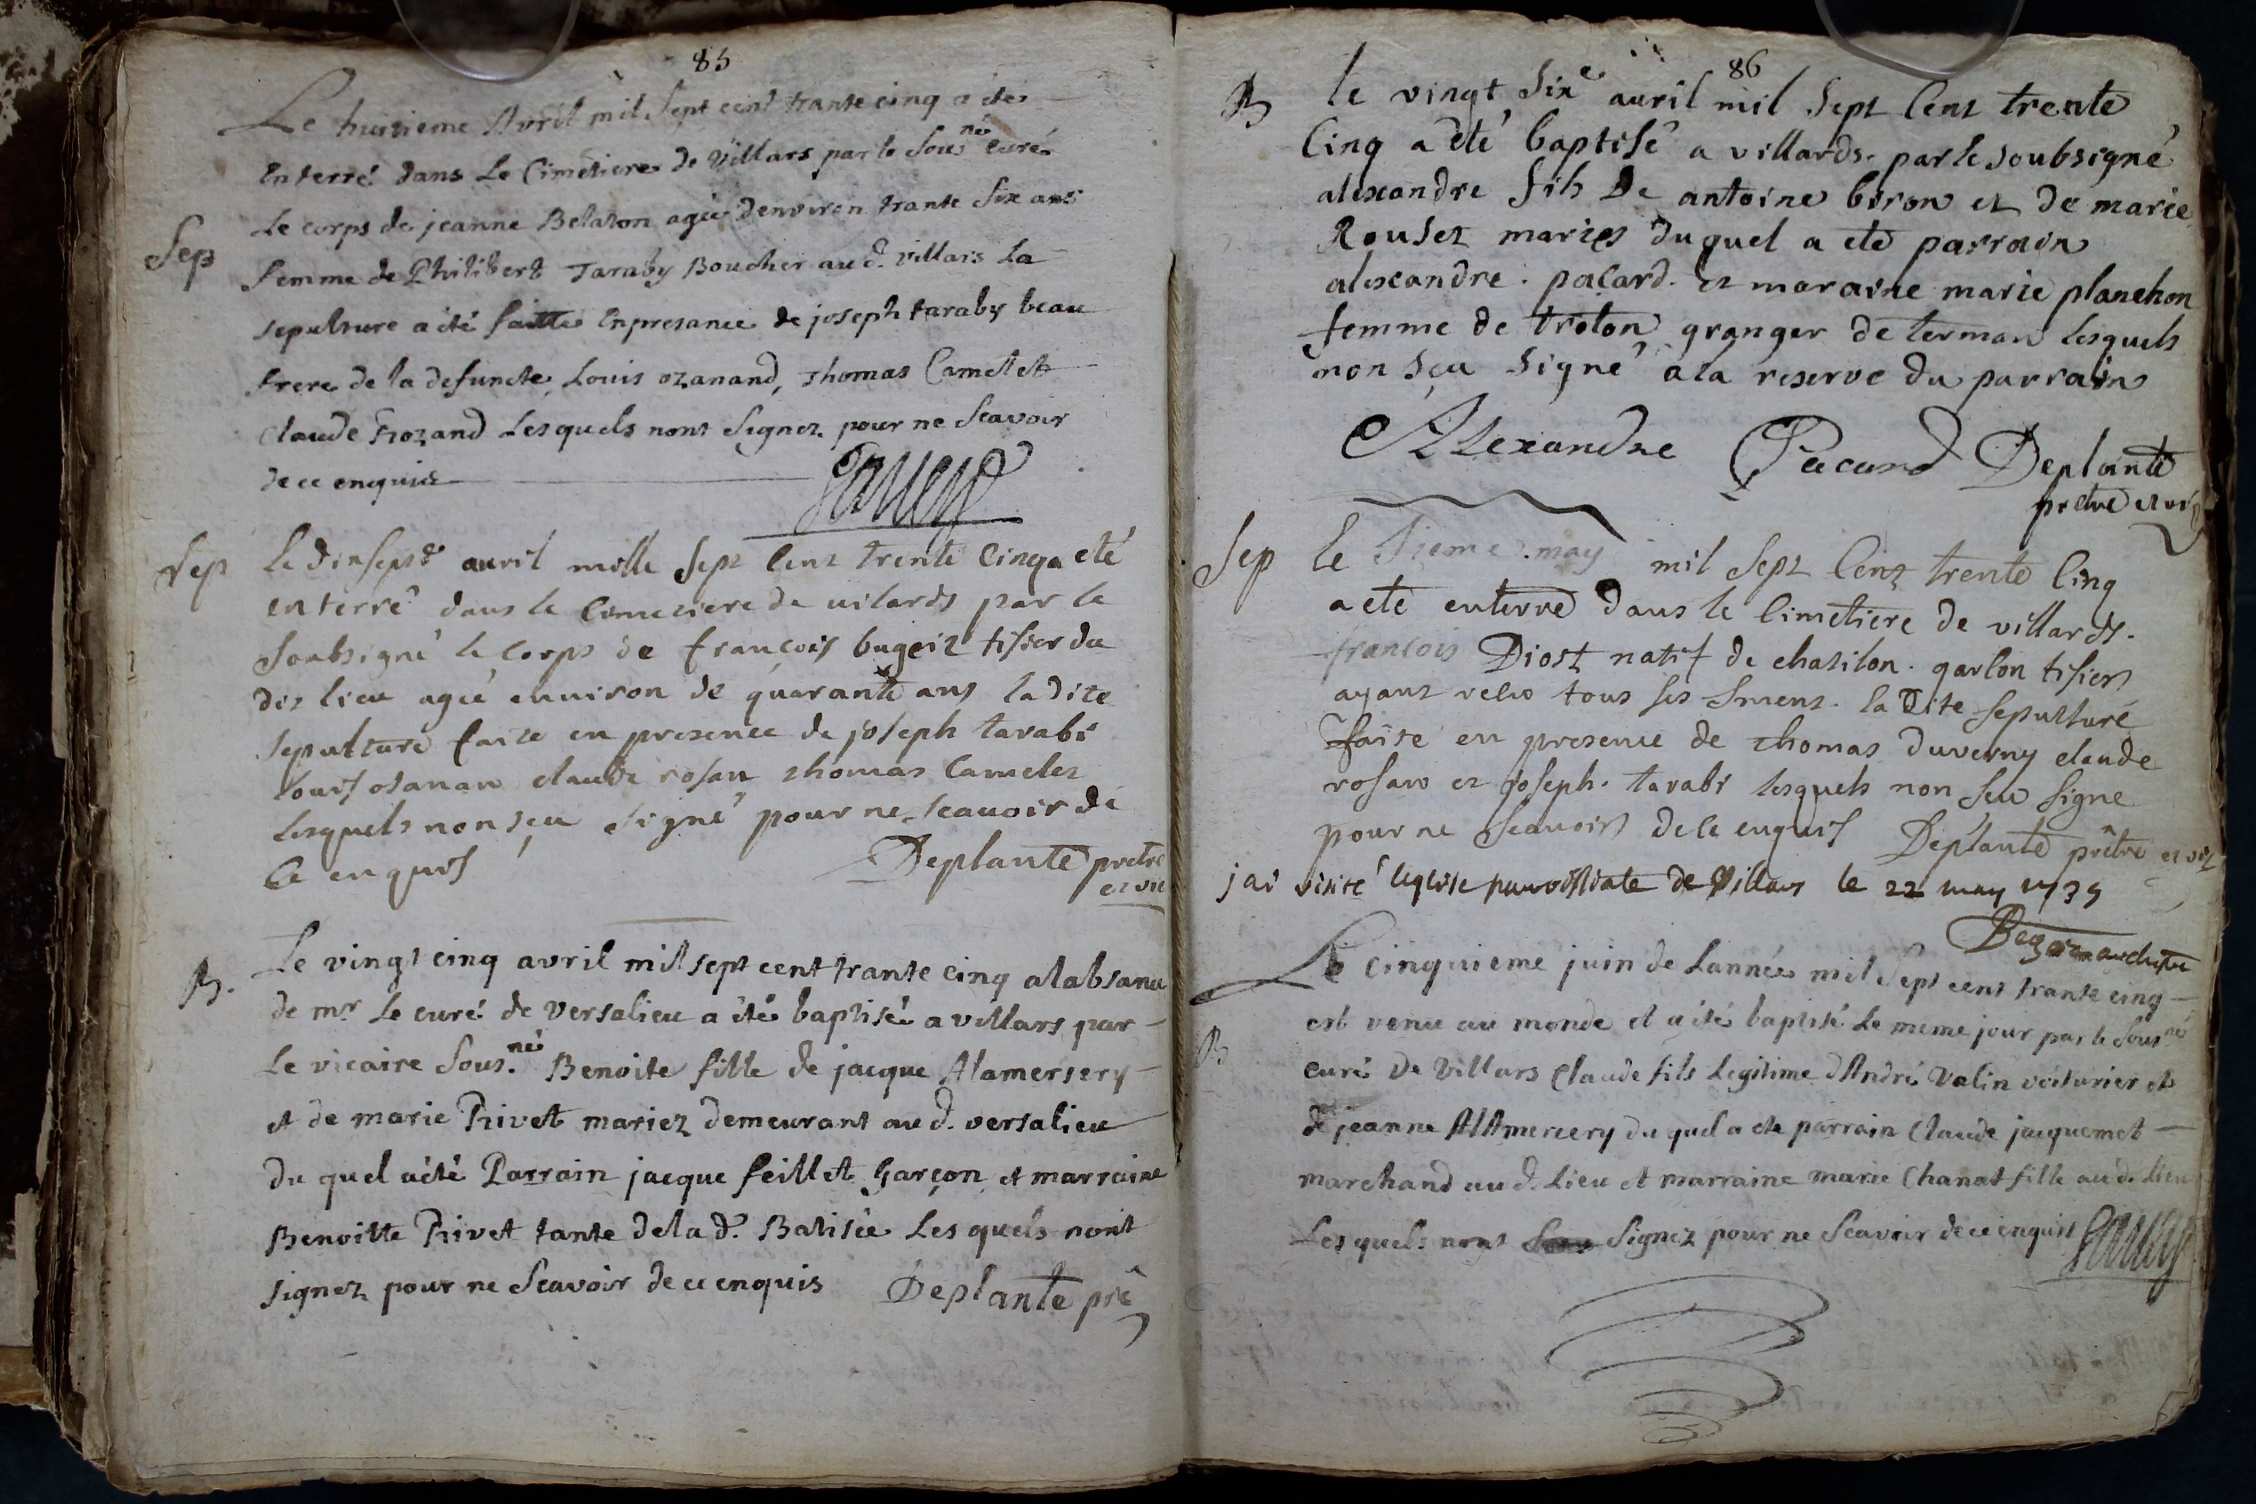 85
Le huitieme Avril mil sept cent trante cinq a éte
Enterré dans Le Cimetiere de Villars par le Sous.né Curé
Le corps de jeanne Belaton agée denviron trante six ans
Sep
femme de Philibert Taraby Boucher au d. villars La
sepulture a été faitte Enpresance de joseph taraby beau
frere de la defuncte, Louis ozanand, Thomas Camelet
Claude Rozand Lesquels nont Signez pour ne Scavoir
de ce enquis
Sep
le dixsept avril mille sept Cent trente Cinq a eté
enterré dans le Cimeziere de vilards par le
Soubsigné le Corps de françois bugeiz tisier du
dit lieu agé environ de quarante ans ladite
sepulture faite en presence de joseph tarabi
louis osanan claude rosan thomas Camelet
lesquels non sçu signé pour ne sçeauoir de
Ce enquis
Deplante pretre
et vic
B.
Le vingt cinq avril mil sept cent trante cinq alabsance
de mr Le curé de Versalieu a été baptisée a villars par
Le vicaire Sous.né Benoite fille de jacque Alamersery
et de marie Rivet mariez demeurant au d. versalieu
du quel aété Parrain jacque feillet Garçon et marraine
Benoitte Rivet tante dela d. Batisée Lesquels nont
signez pour ne Scavoir de ce enquis
Deplante ptre
86
B
le vingt six avril mil sept Cent trente
Cinq a eté baptisé a villards par le soubsigné
alexandre fils De antoine biron et de marie
Rouset maries duquel a ete parrain
alexandre pacard et maraine marie planchon
femme de troton granger de terman lesquels
non sçu signé a la reserve du parrain
Alexandre Pacard Deplante
pretre et vic
Sep
le may mil sept Cent trente Cinq
a ete enterré dans le Cimetiere de villards.
françois Diost natif de chatilon garson tisier
ayant recu tous ses la Dite sepulture
faite en presence de thomas duverny claude
rosan et joseph tarabi lesquels non seu signe
pour ne sceauoir de ce enquis Deplante prêtre et vic
jai visité leglise parroissiale de Villars le 22 may 1735
Le cinquieme juin de Lannée mil Sept cent trante cinq
B
est venu au monde et a été baptisé Le meme jour par le Sous.né
curé de Villars Claude fils Legitime d'André Valin voiturier et
de jeanne AlAmercery du quel a ete parrain Claude jacquemet
marchand au d. Lieu et marraine marie Chanat fille au d. Lieu
Lesquels nont Signez pour ne Scavoir de ce enquis